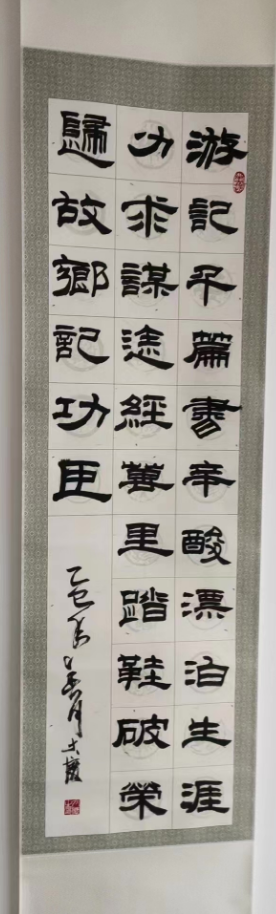 游記千篇書辛酸漂泊生涯
功求謀途經萬里踏鞋破榮
歸故鄉記功臣
乙巳年春月